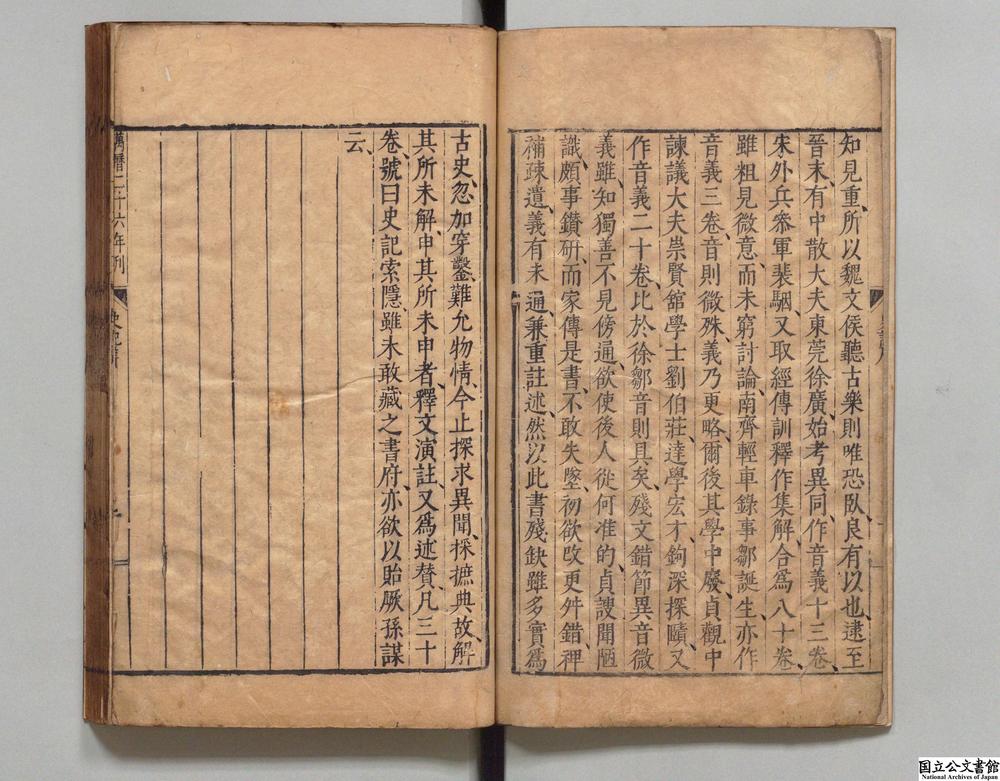 知見重所以魏文侯聽古樂則唯恐臥良有以也逮至
晉末有中散大夫東莞徐廣始考異同作音義十三卷
宋外兵叅軍裴駰又取經傳訓釋作集解合爲八十卷
雖粗見微意而未窮討論南齊輕車錄事鄒誕生亦作
音義三卷音則微殊義乃更略爾後其學中廢貞觀中
諫議大夫崇賢舘學士劉伯莊達學宏才鉤深探賾又
作音義二十卷比於徐鄒音則具矣殘文錯節異音微
義雖知獨善不見傍通欲使後人從何准的貞謏聞陋
識頗事鑽研而家傳是書不敢失墜初欲改更舛錯裨
補疎遺義有未通兼重註述然以此書殘缺雖多實爲
古史忽加穿鑿難允物情今止探求異聞採摭典故解
其所未解申其所未申者釋文演註又爲述賛凡三十
卷號曰史記索隱雖未敢藏之書府亦欲以貽厥孫謀
云
萬曆二十六年刊
国立公文書館
National Archives of Japan